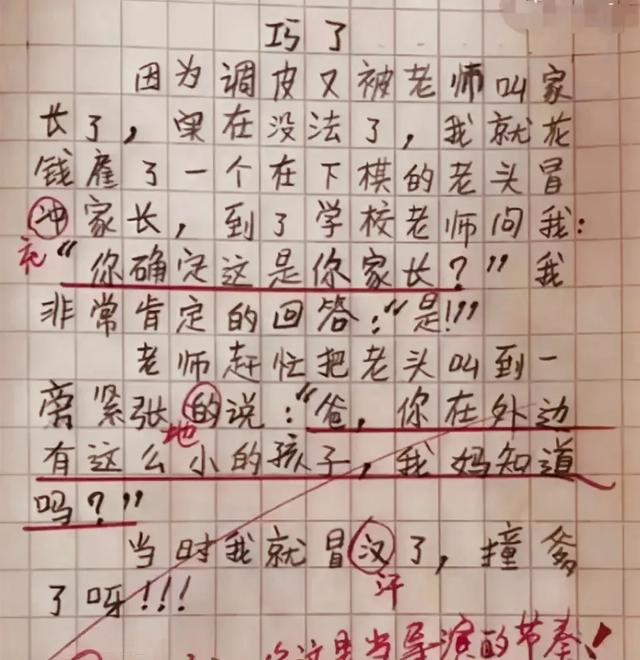 巧了
因为调皮又被老师叫家
长了，实在没法了，我就花
钱雇了一个在下棋的老头冒
冲家长，到了学校老师问我：
充
“你确定这是你家长？”我
非常肯定的回答：“是!!”
老师赶忙把老头叫到一
旁紧张的说：“爸，你在外边
地
有这么小的孩子，我妈知道
吗？”
当时我就冒汉了，撞爹
汗
了呀!!!
这里当导演的节奏！